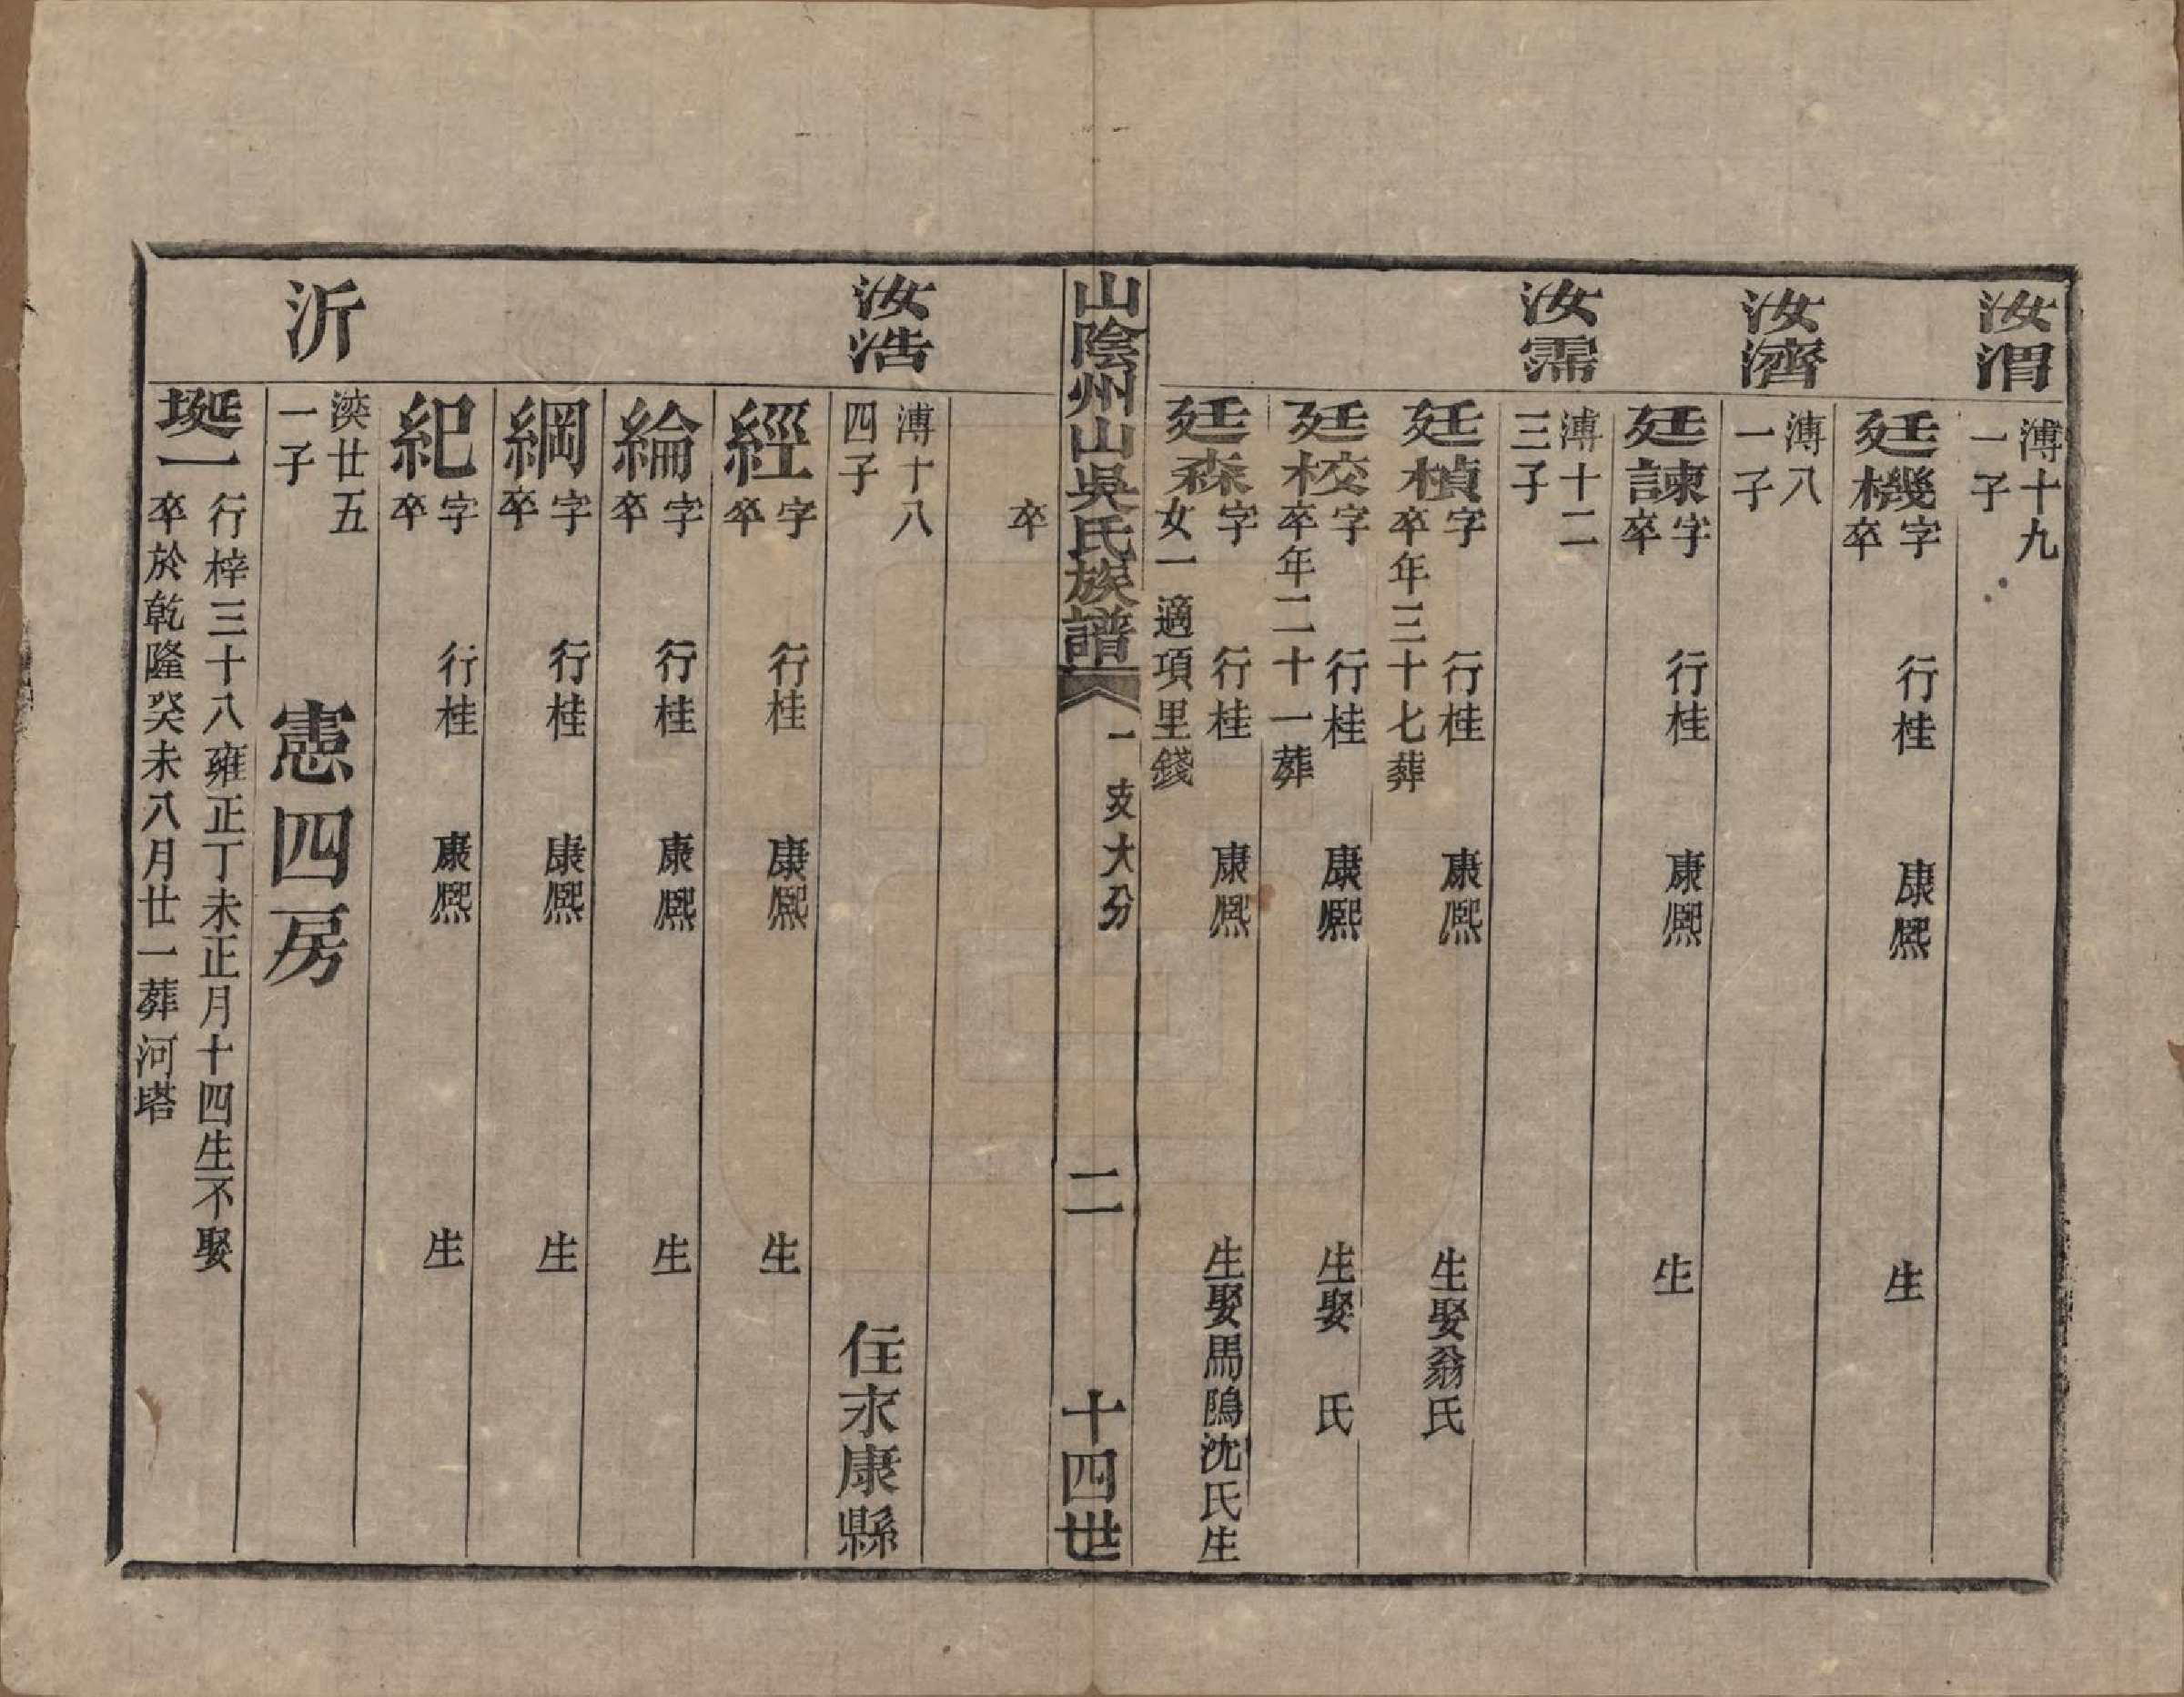 汝渭
溥十九
一子
廷機字 行桂 康熙 生
卒
汝濟
溥八
一子
廷諫字 行桂 康熙 生
卒
汝霈
溥十二
三子
廷楨字 行桂 康熙 生娶翁氏
卒年三十七葬
廷校字 行桂 康熙 生娶 氏
卒年二十一葬
廷森字 行桂 康熙 生娶馬鵭沈氏生
女一適項里錢
山陰州山吳氏族譜 一支大分 二 十四世
卒
汝浩
溥十八
四子 住永康縣
經字 行桂 康熙 生
卒
綸字 行桂 康熙 生
卒
綱字 行桂 康熙 生
卒
紀字 行桂 康熙 生
卒
沂
湙廿五
一子 憲四房
埏一 行梓三十八雍正丁未正月十四生不娶
卒於乾隆癸未八月廿一葬河塔